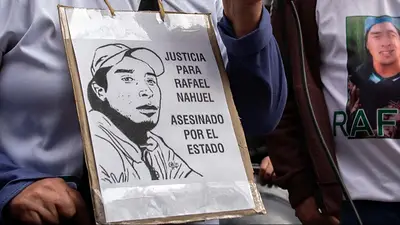 JUSTICIA
PARA
RAFAEL
NAHUEL
ASESINADO
POR EL
ESTADO
RAF